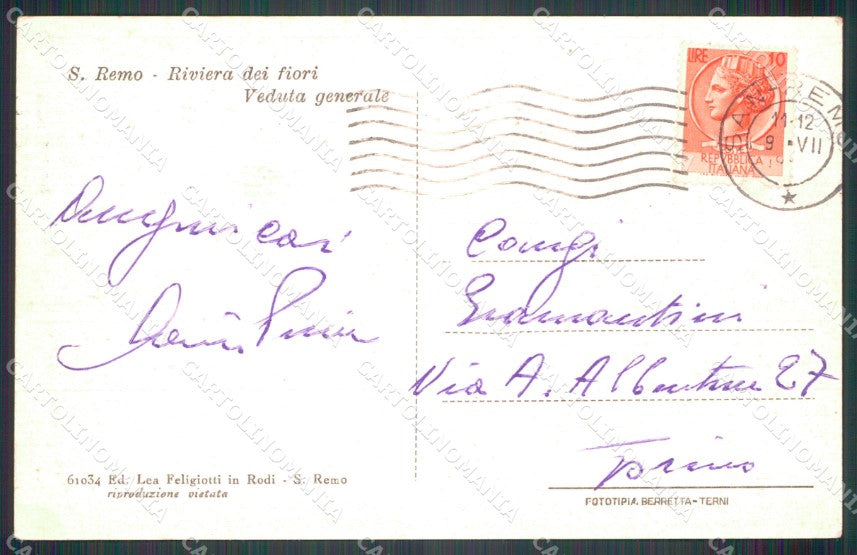 S. Remo - Riviera dei fiori
Veduta generale
LIRE 10
REPVBBLICA
ITALIANA
SAN REMO
11-12
9 -VII
Auguri cari
Coniugi
Via A. 27
Torino
61034 Ed. Lea Feligiotti in Rodi - S. Remo
riproduzione vietata
FOTOTIPIA BERRETTA - TERNI
CARTOLINOMANIA